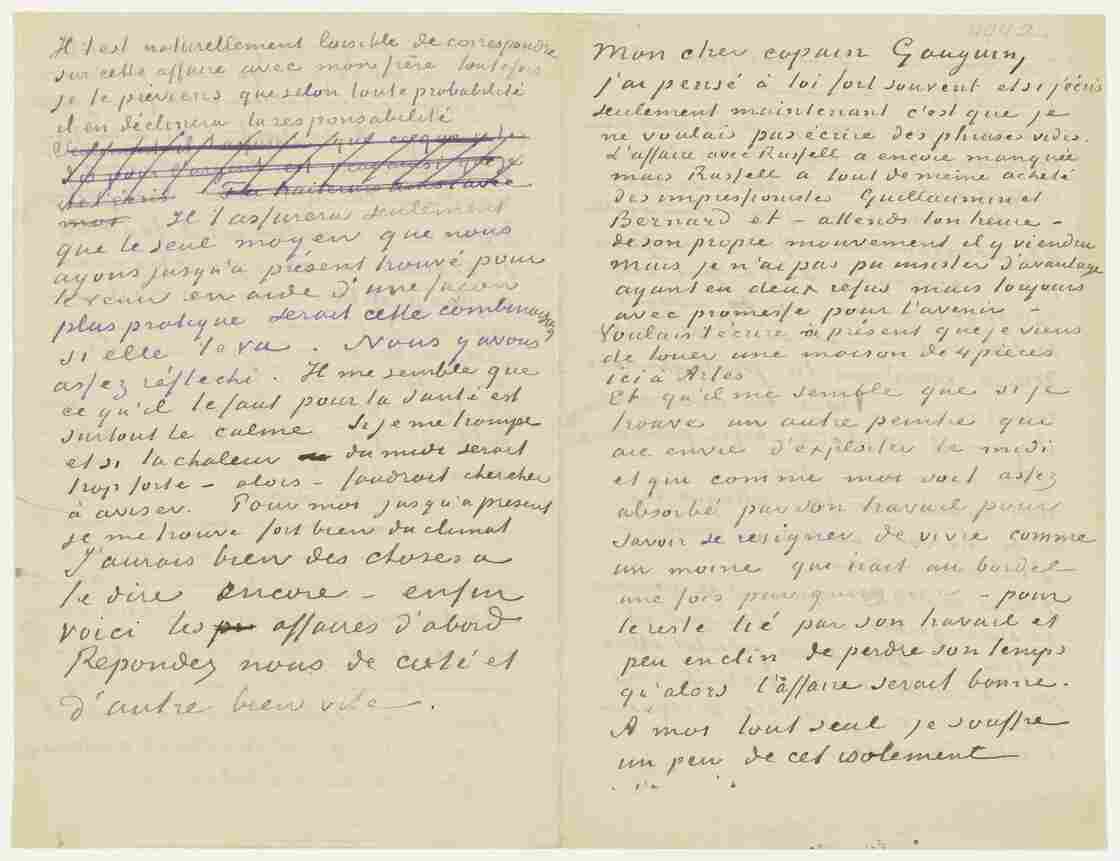 Il t'est naturellement loisible de correspondre
sur cette affaire avec mon frère toutefois
je te préviens que selon toute probabilité
il en déclinera la responsabilité
mot Il t'assurera seulement
que le seul moyen que nous
ayons jusqu'à présent trouvé pour
te venir en aide d'une façon
plus pratique serait cette combinaison
si elle te va. Nous y avons
assez réflechi. Il me semble que
ce qu'il te faut pour ta santé est
surtout le calme Si je me trompe
et si la chaleur du midi serait
trop forte – alors – faudrait chercher
à aviser. Pour moi jusqu'à present
je me trouve fort bien du climat
J'aurais bien des choses a
te dire encore – enfin
voici les affaires d'abord
Repondez nous de coté et
d'autre bien vite.
Mon cher copain Gauguin,
j'ai pensé à toi fort souvent et si j'écris
seulement maintenant c'est que je
ne voulais pas écrire des phrases vides.
L'affaire avec Russell a encore manquée
mais Russell a tout de meme acheté
des impressionistes Guillaumin et
Bernard et – attends ton heure –
de son propre mouvement il y viendra
mais je n'ai pas pu insister d'avantage
ayant eu deux refus mais toujours
avec promesse pour l'avenir –
Voulais t'écrire à présent que je viens
de louer une maison de 4 pièces
ici à Arles
Et qu'il me semble que si je
trouve un autre peintre qui
aie envie d'exploiter le midi
et qui comme moi soit assez
absorbé par son travail pour
savoir se resigner de vivre comme
un moine qui irait au bordel
une fois par quinzaine – pour
le reste lié par son travail et
peu enclin de perdre son temps
qu'alors l'affaire serait bonne.
A moi tout seul je souffre
un peu de cet isolement